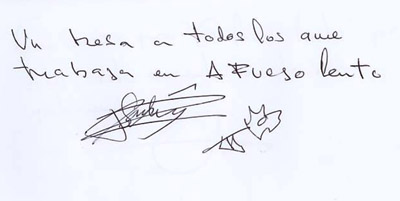 Un beso a todos los que
trabaja en A Fuego lento